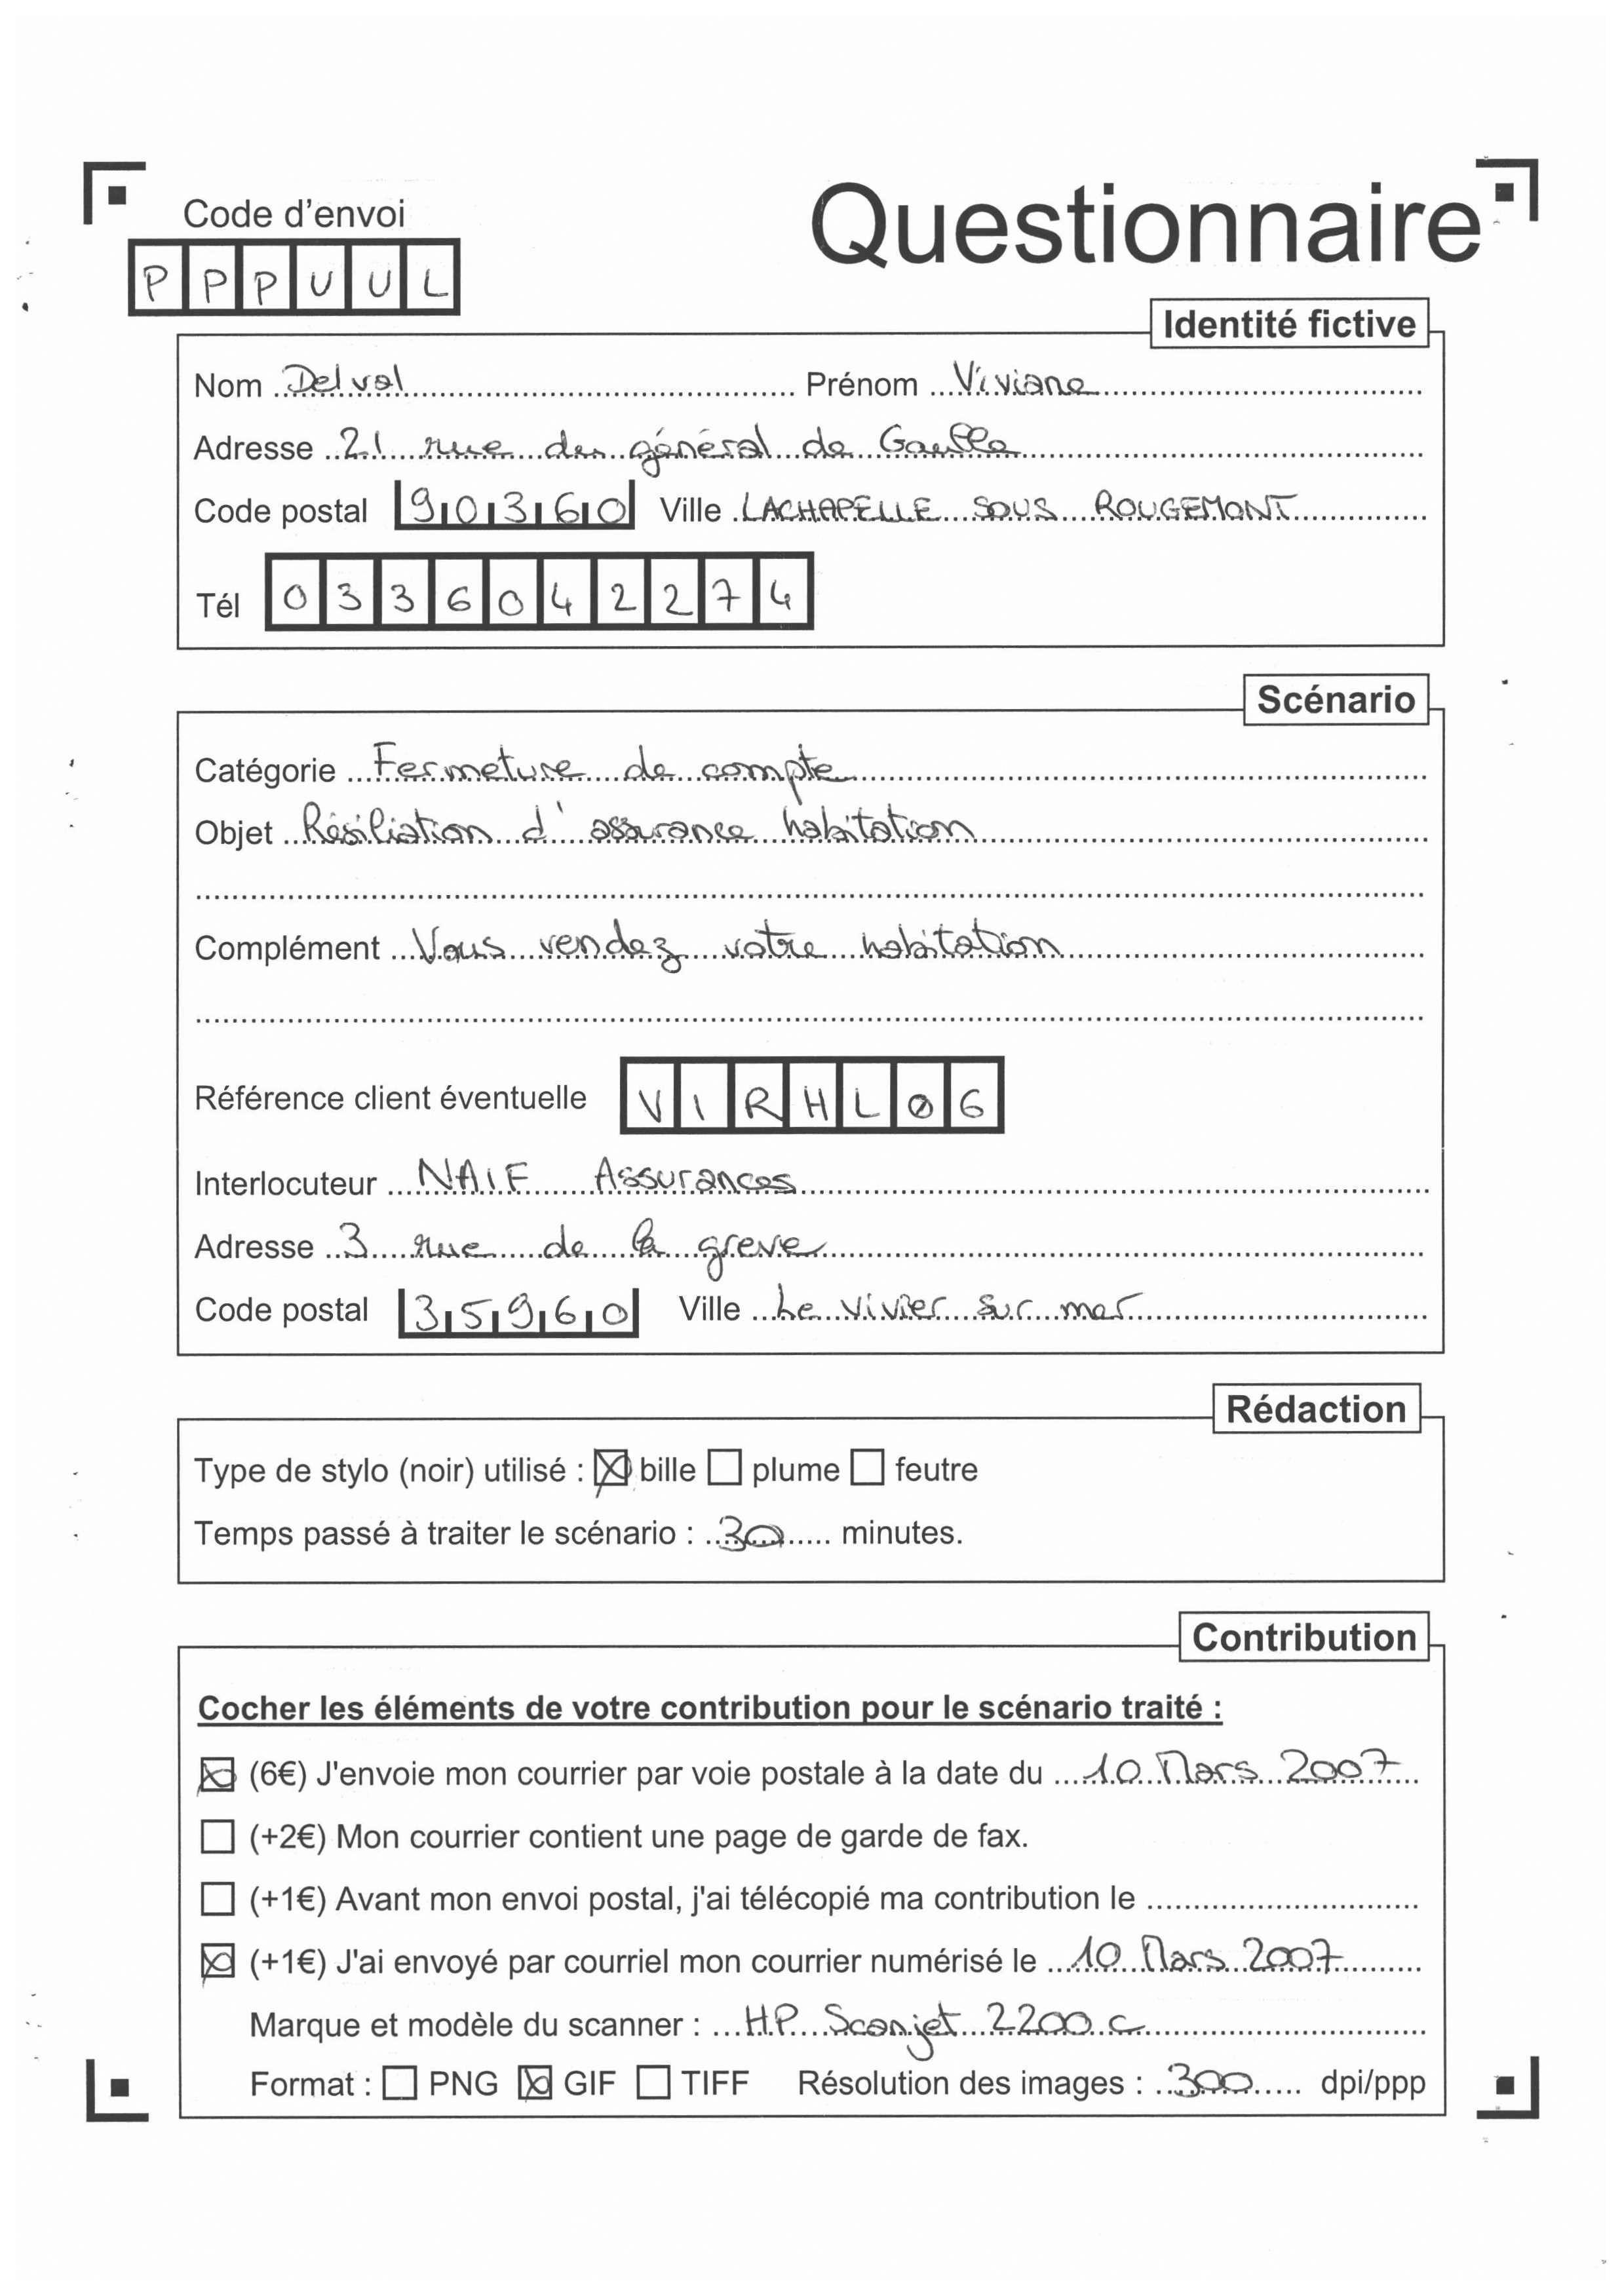 Code d'envoi
PPPUUL
Questionnaire
Identité fictive
Nom Delval Prénom Viviane
Adresse 21 rue du général de Gaulle
Code postal 90360 Ville LACHAPELLE SOUS ROUGEMONT
Tél 0336042274
Scénario
Catégorie Fermeture de compte
Objet Résiliation d'assurance habitation
Complément Vous vendez votre habitation
Référence client éventuelle VIRHL06
Interlocuteur NAIF Assurances
Adresse 3 rue de la greve
Code postal 35960 Ville Le vivier sur mer
Rédaction
Type de stylo (noir) utilisé : bille plume feutre
Temps passé à traiter le scénario : 30 minutes.
Contribution
Cocher les éléments de votre contribution pour le scénario traité :
(6€) J'envoie mon courrier par voie postale à la date du 10 Mars 2007
(+2€) Mon courrier contient une page de garde de fax.
(+1€) Avant mon envoi postal, j'ai télécopié ma contribution le
(+1€) J'ai envoyé par courriel mon courrier numérisé le 10 Mars 2007
Marque et modèle du scanner : HP Scanjet 2200 c
Format : PNG GIF TIFF Résolution des images : 300 dpi/ppp